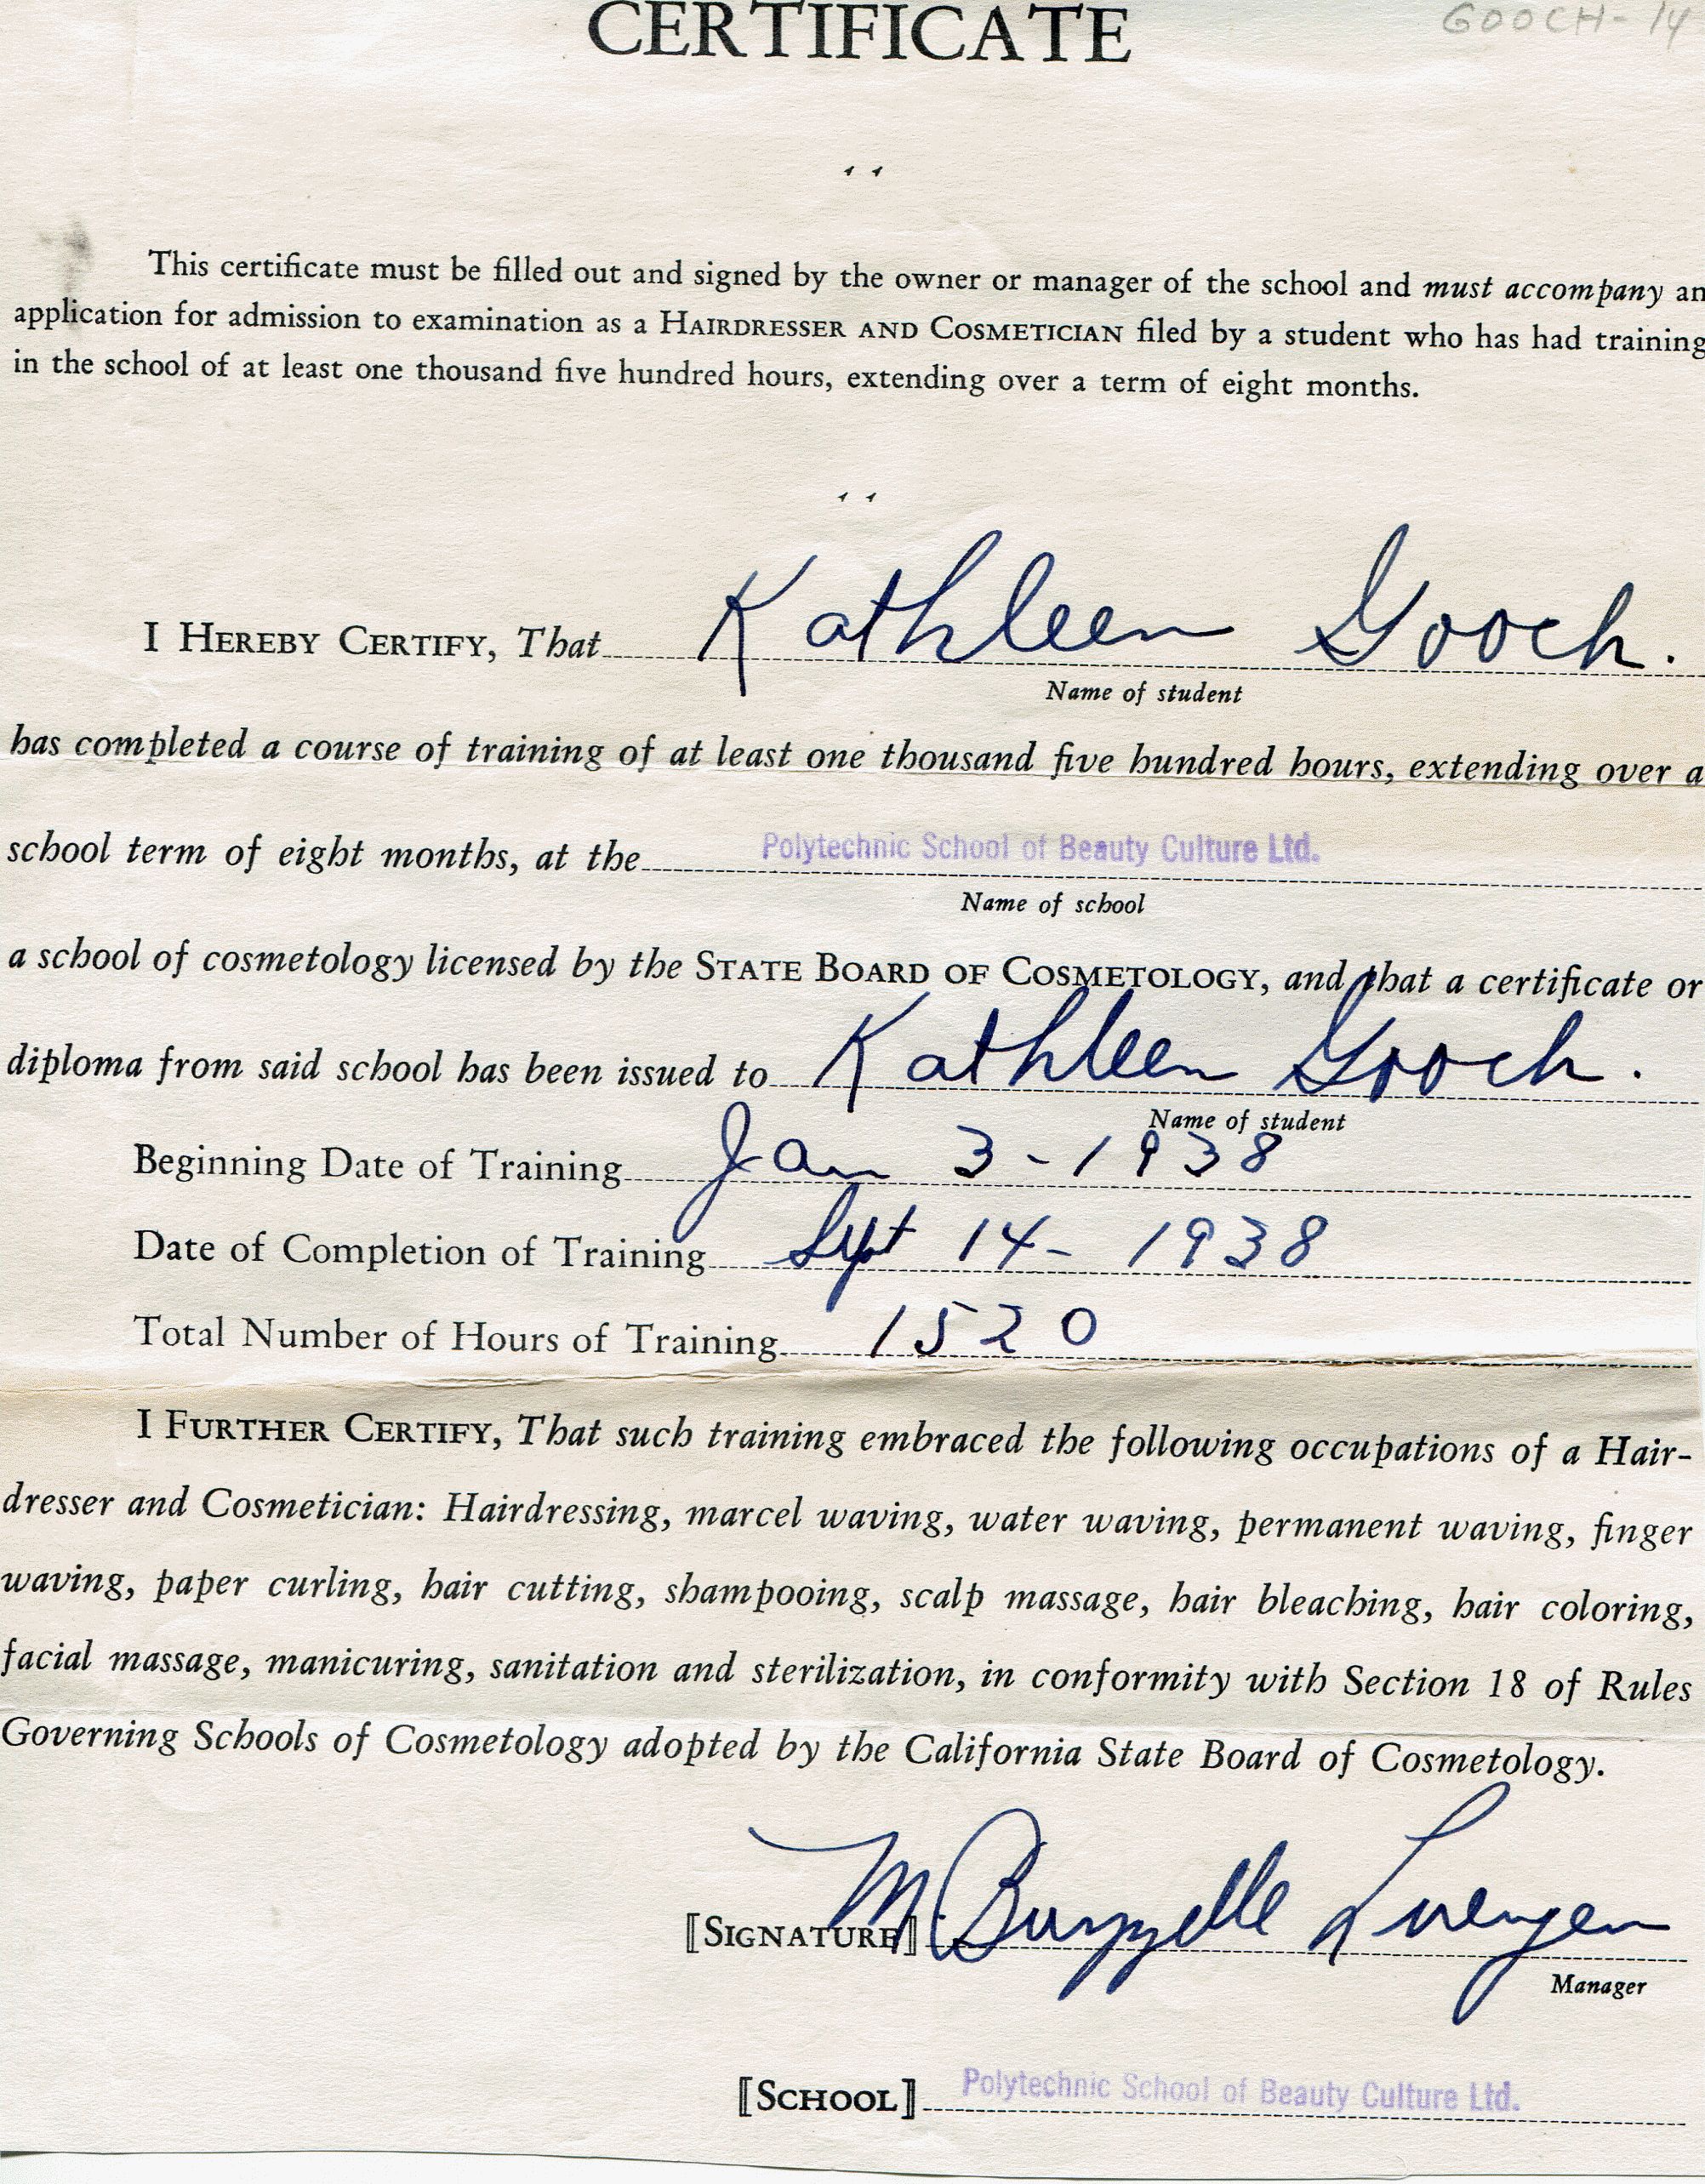 CERTIFICATE
GOOCH-14
This certificate must be filled out and signed by the owner or manager of the school and must accompany an
application for admission to examination as a HAIRDRESSER AND COSMETICIAN filed by a student who has had training
in the school of at least one thousand five hundred hours, extending over a term of eight months.
I HEREBY CERTIFY, That Kathleen Gooch.
Name of student
has completed a course of training of at least one thousand five hundred hours, extending over a
school term of eight months, at the Polytechnic School of Beauty Culture Ltd.
Name of school
a school of cosmetology licensed by the STATE BOARD OF COSMETOLOGY, and that a certificate or
diploma from said school has been issued to Kathleen Gooch.
Name of student
Beginning Date of Training Jan 3-1938
Date of Completion of Training Sept 14-1938
Total Number of Hours of Training 1520
I FURTHER CERTIFY, That such training embraced the following occupations of a Hair-
dresser and Cosmetician: Hairdressing, marcel waving, water waving, permanent waving, finger
waving, paper curling, hair cutting, shampooing, scalp massage, hair bleaching, hair coloring,
facial massage, manicuring, sanitation and sterilization, in conformity with Section 18 of Rules
Governing Schools of Cosmetology adopted by the California State Board of Cosmetology.
[SIGNATURE] M
Manager
[SCHOOL] Polytechnic School of Beauty Culture Ltd.